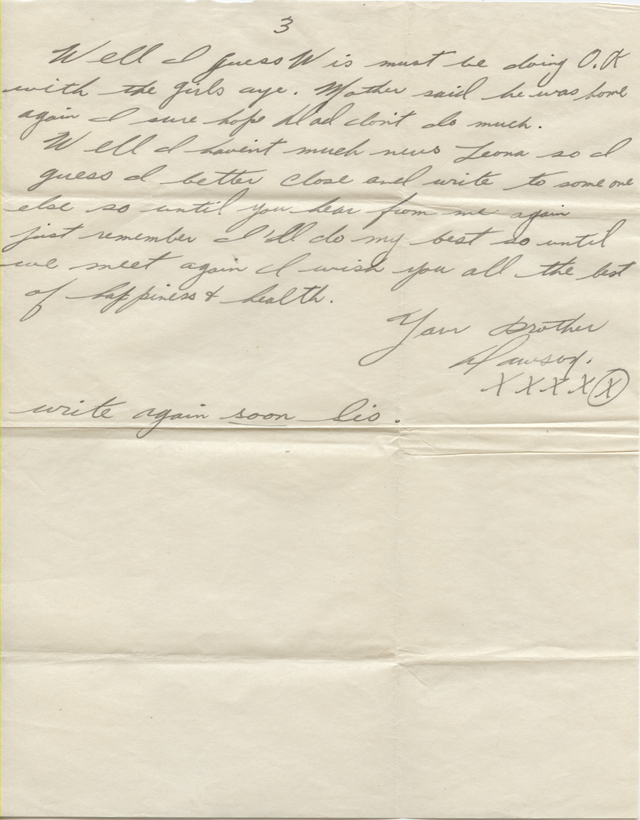 3
Well I guess Wis must be doing O.K
with the girls aye. Mother said he was home
again I sure hope Dad don't do much.
Well I havent much news Leona so I
guess I better close and write to some one
else so until you hear from me again
just remember I'll do my best so until
we meet again I wish you all the best
of happiness & health.
Your Brother
Dawson.
XXXXX
write again soon Sis.